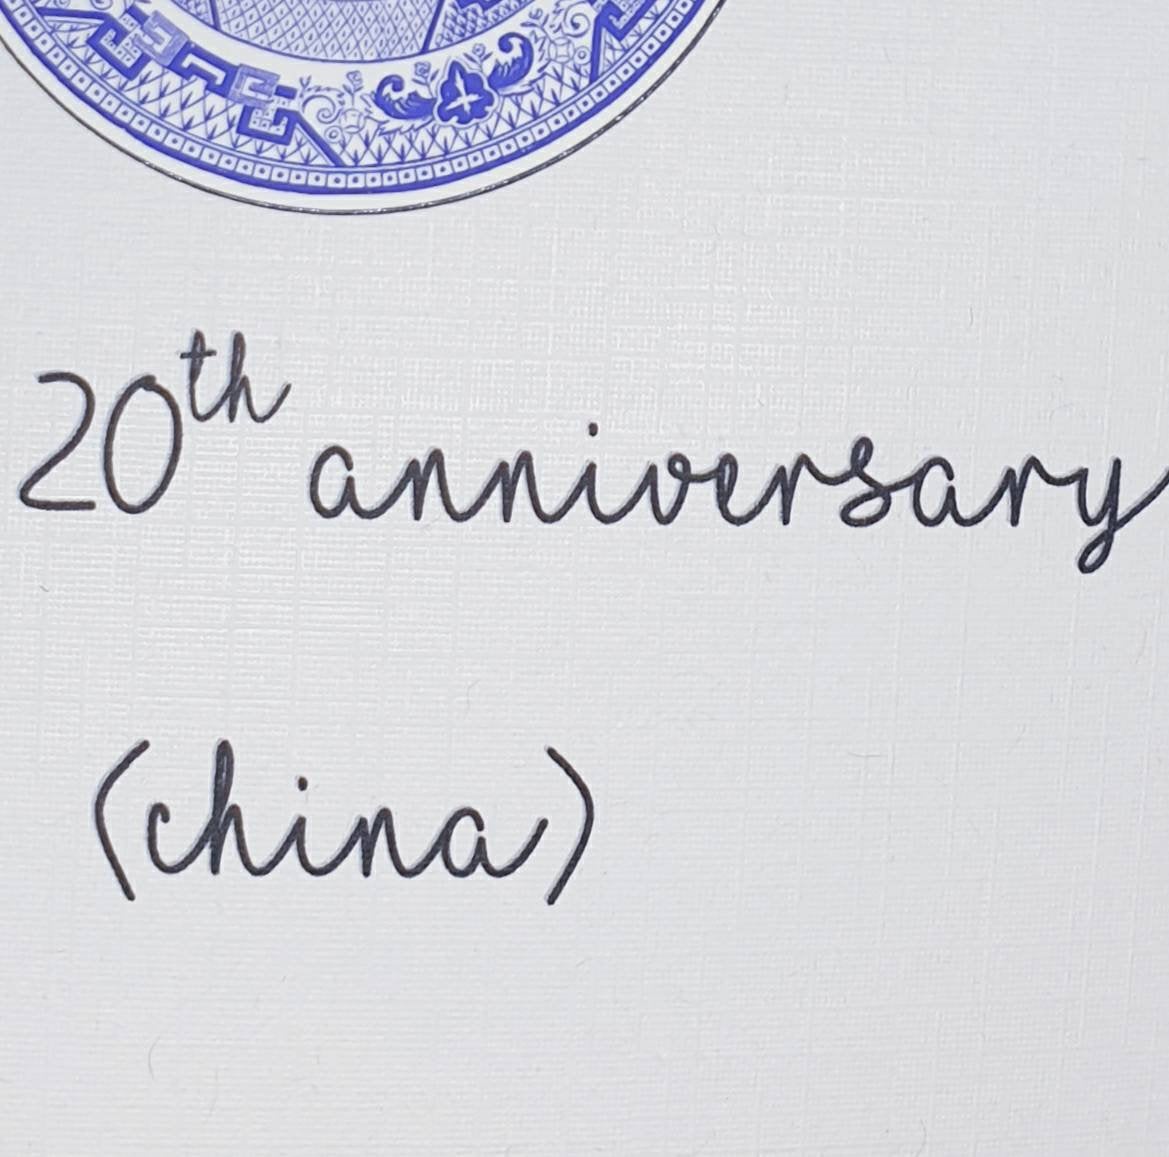 20th anniversary
(china)